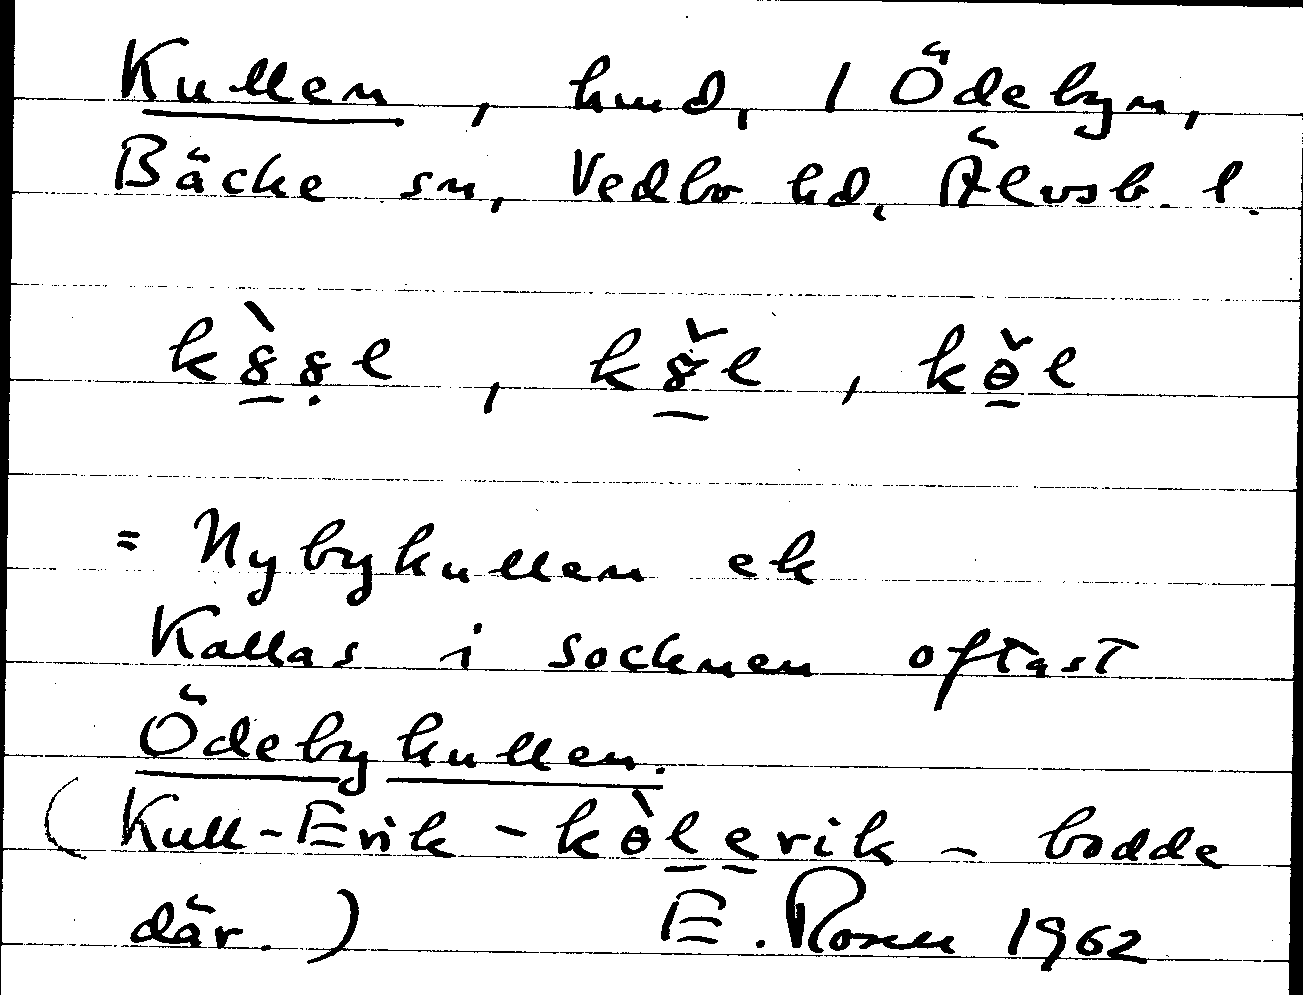 Kullen, hmd, 1 Ödebyn,
Bäcke sn, Vedbo hd, Älvsb. l.
= Nybykullen ek
Kallas i socknen oftast
Ödebykullen.
(Kull-Erik - kò̀lerik - bodde
där.) E. Rosen 1962